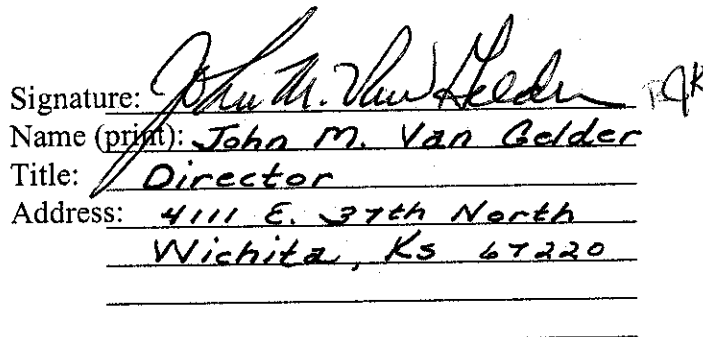 Signature: John M. Van Gelder
Name (print): John M. Van Gelder
Title: Director
Address: 4111 E. 37th North
Wichita, Ks 67220